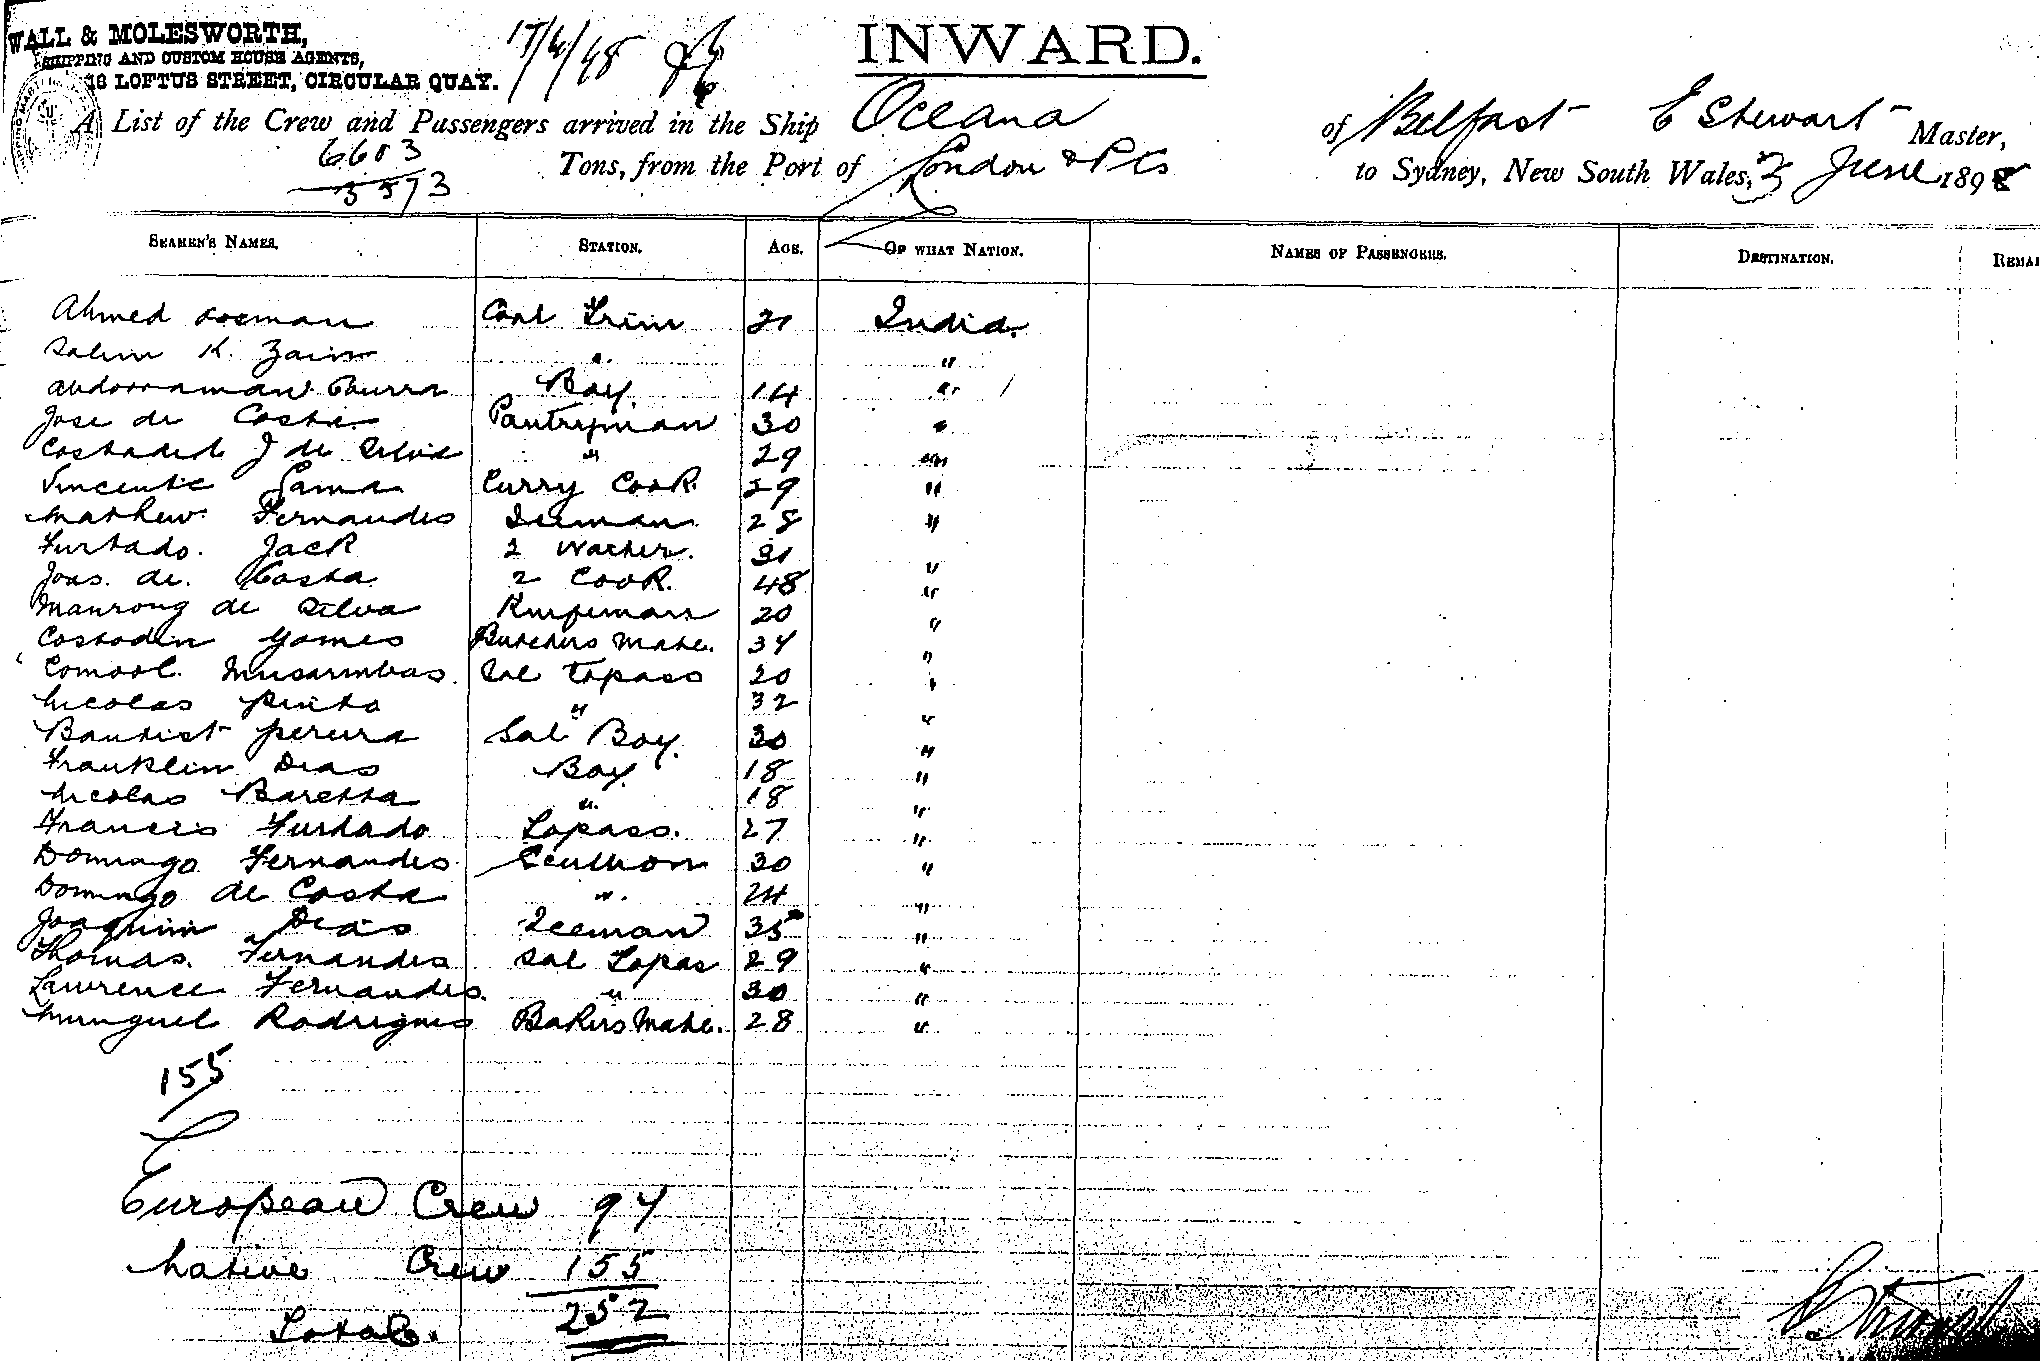 WALL & MOLESWORTH,
SHIPPING AND CUSTOM HOUSE AGENTS,
16 LOFTUS STREET, CIRCULAR QUAY.
INWARD.
A List of the Crew and Passengers arrived in the Ship Oceana of Belfast E Stewart Master,
6603 Tons, from the Port of London & Pts to Sydney, New South Wales, 3 June 1898
3573
SEAMEN'S NAMES. STATION. AGE. OF WHAT NATION. NAMES OF PASSENGERS. DESTINATION. REMA
Ahmed Coal Trim 21 India.
Salim K. Zain " "
Burra Boy. 14 "
Jose de Costa Pantryman 30 "
J de Silva " 29 "
Vincente Gama Curry Cook. 29 "
Mathew Fernandes 28 "
Furtado. Jack 2 31 "
Joas. de. Costa 2 Cook. 48 "
de Silva 20 "
Costodin Gomes Butchers Mate. 34 "
Sal Topass 20 "
Nicolas Pinto " 32 "
Bautist Pereira Sal Boy. 30 "
Franklin Dias Boy. 18 "
Nicolas Baretta " 18 "
Francis Furtado Topass. 27 "
Domingo Fernandes Scullion 30 "
Domingo de Costa " 24 "
Joaquim Dias 35 "
Thomas. Fernandes Sal Topas 29 "
Lawrence Fernandes. " 30 "
Minguel Rodrigues Bakers Mate. 28 "
155
European Crew 97
Native Crew 155
Total. 252